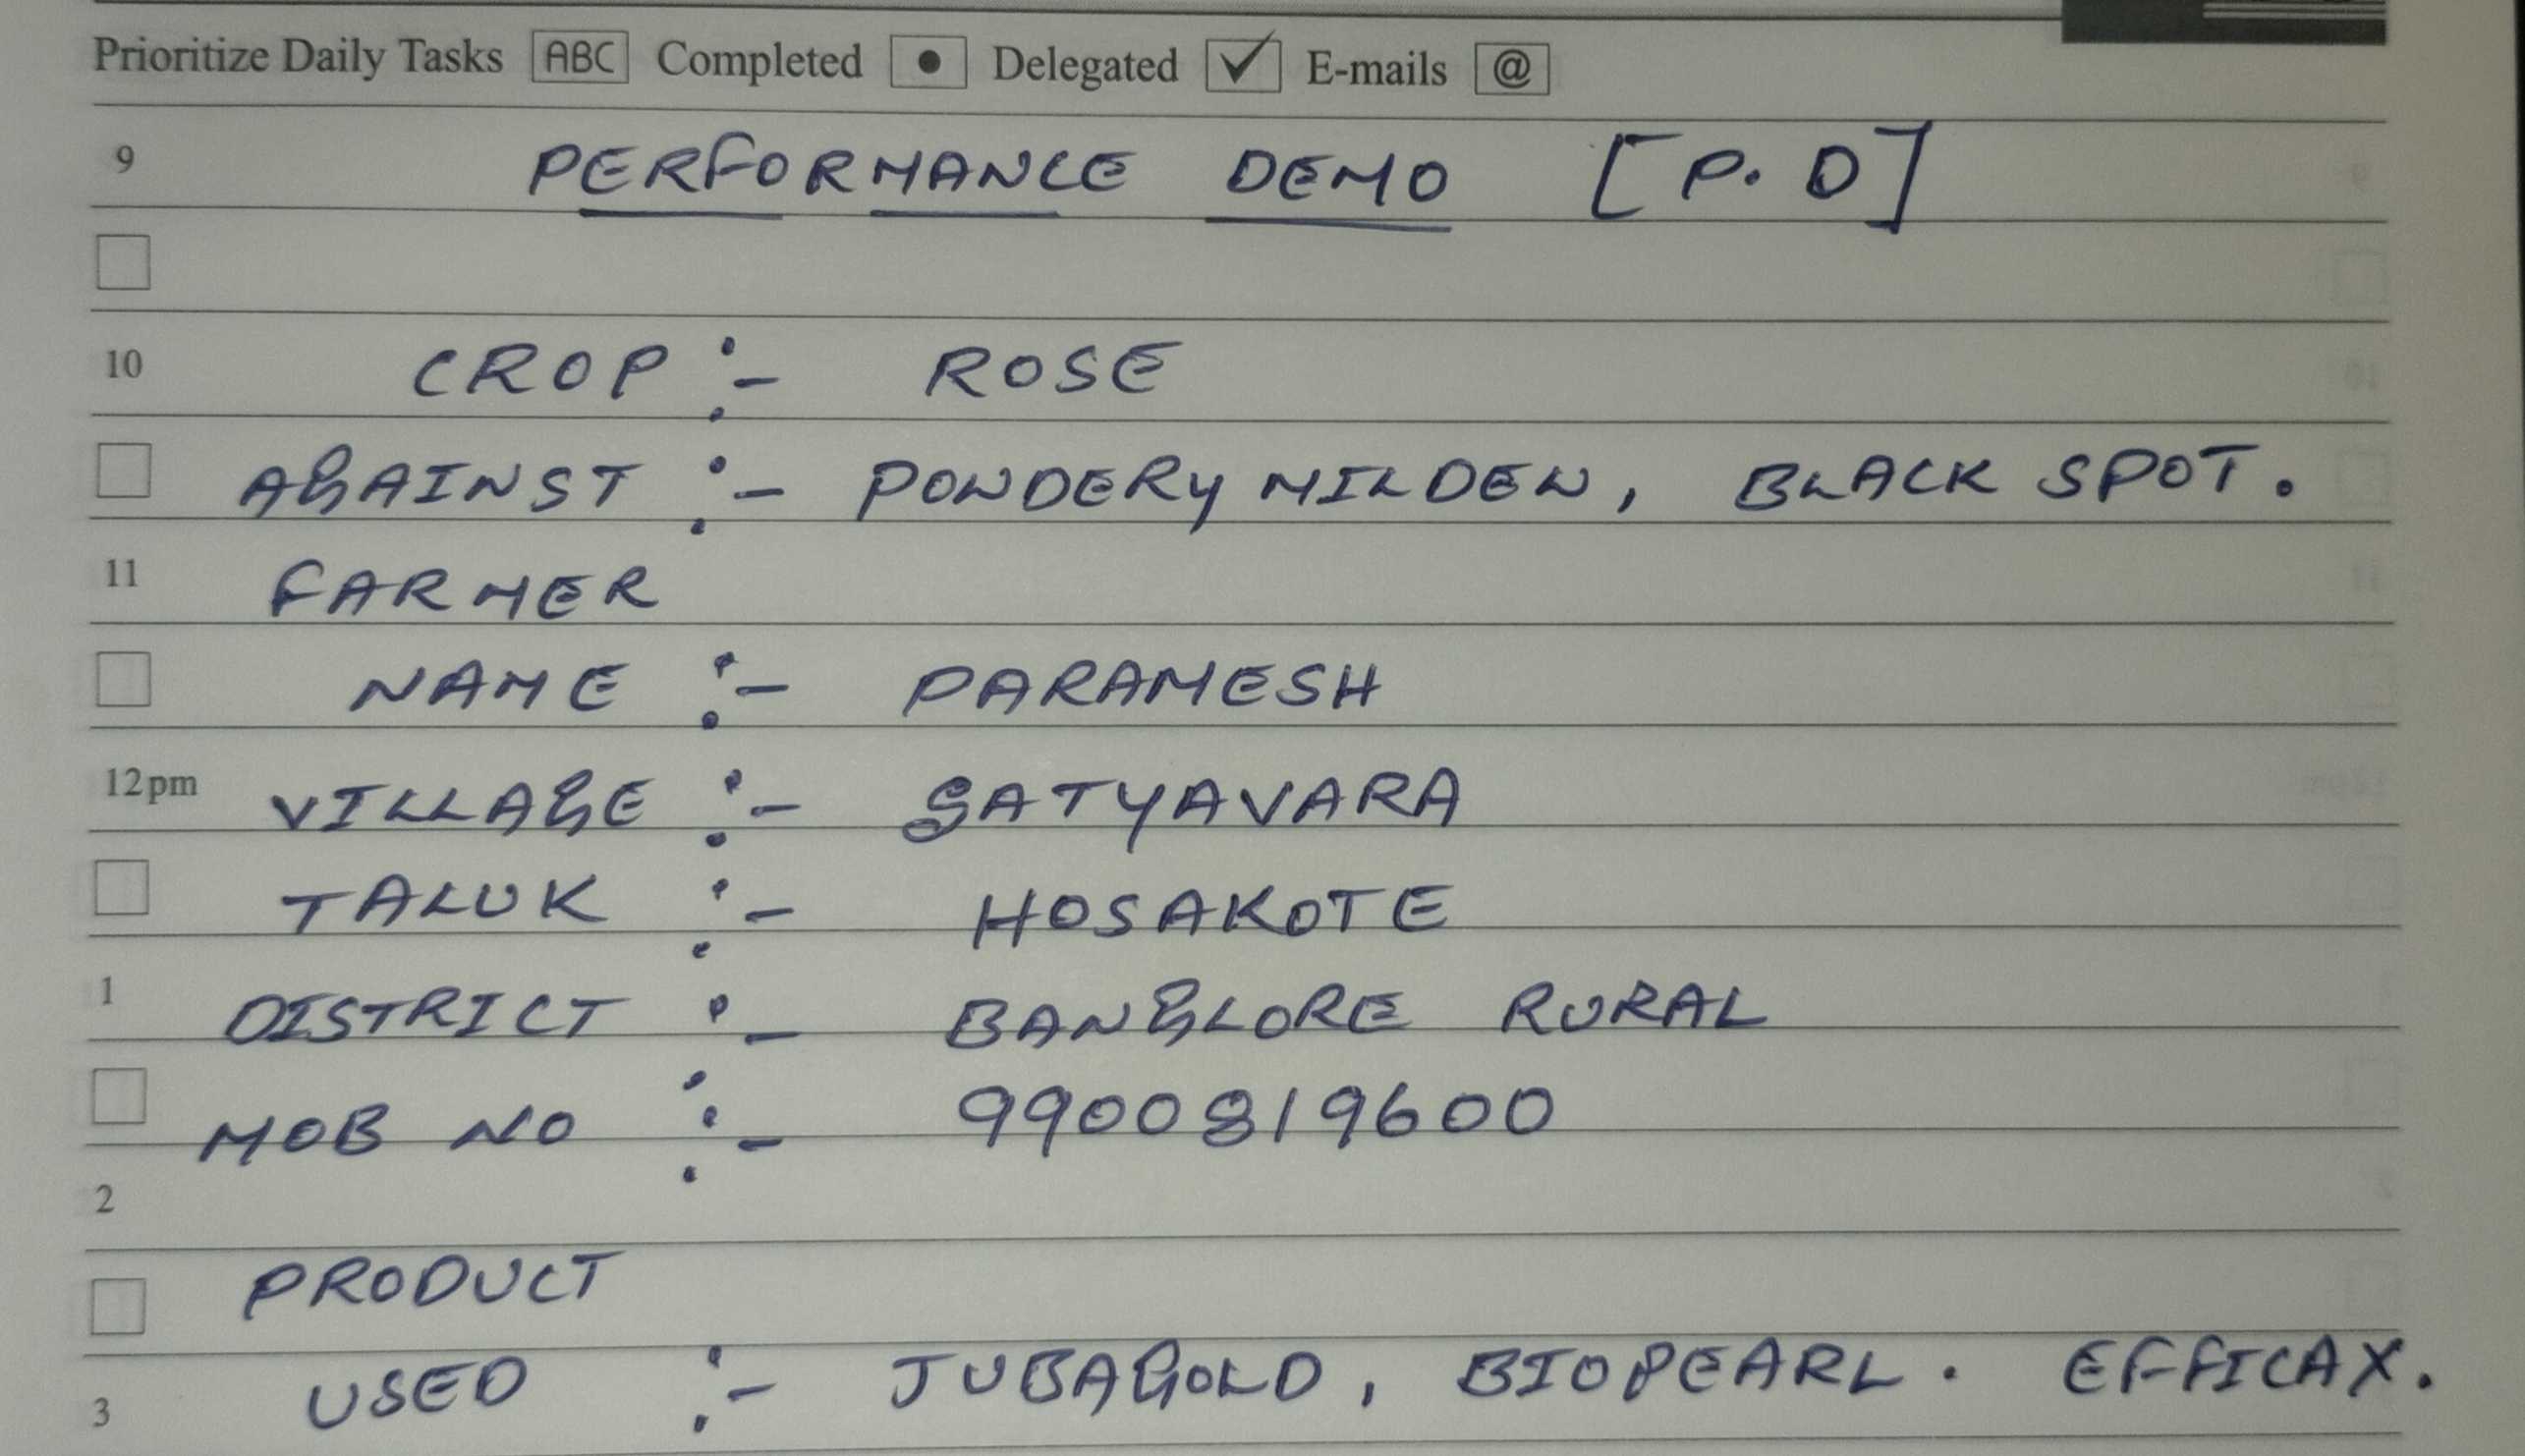 Prioritize Daily Tasks ABC Completed • Delegated ✓ E-mails @
9 PERFORMANCE DEMO [P. D]
10 CROP :- ROSE
AGAINST :- POWDERY MILDEW, BLACK SPOT.
11 FARMER
NAME :- PARAMESH
12pm VILLAGE :- SATYAVARA
TALUK :- HOSAKOTE
1 DISTRICT :- BANGLORE RURAL
MOB NO :- 9900819600
2
PRODUCT
3 USED :- JUBAGOLD, BIOPEARL. EFFICAX.